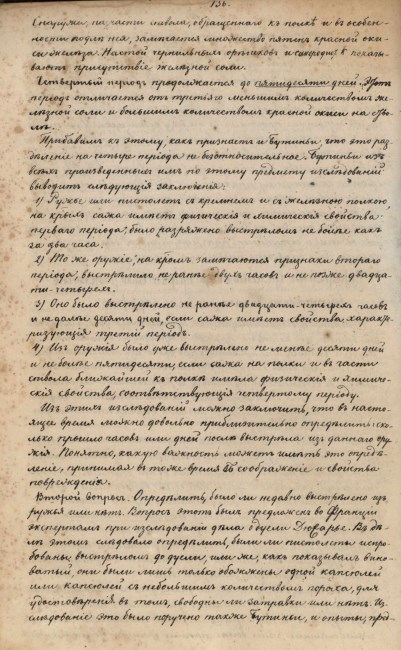 136.
Снаружи, на части ствола, обращеннаго къ полкѣ и въ особен-
ности подлѣ нея, замѣчается множество пятенъ красной оки-
си желѣза. Настой чернильныхъ орѣшковъ и показы-
ваютъ присутствіе желѣзной соли.
Четвертый періодъ продолжается до пятидесяти дней. Этотъ
періодъ отличается отъ третьяго меньшимъ количествомъ же-
лѣзной соли и большимъ количествомъ красной окиси на
Прибавимъ къ этому, какъ признаетъ и Бутиньи, что это раз-
дѣленіе на четыре періода не безотносительное. Бутиньи изъ
всѣхъ произведенныхъ имъ по этому предмету изслѣдованій
выводитъ слѣдующія заключенія:
1) Ружье или пистолетъ съ кремнемъ и съ желѣзною полкою,
на коихъ сажа имѣетъ физическія и химическія свойства
перваго періода, было разряжено выстрѣломъ не болѣе какъ
за два часа.
2) То же оружіе, на коемъ замѣчаются признаки втораго
періода, выстрѣлило не ранѣе двухъ часовъ и не позже двадца-
ти-четырехъ.
3) Оно было выстрѣлено не ранѣе двадцати-четырехъ часовъ
и не далѣе десяти дней, если сажа имѣетъ свойства характе-
ризующія третій періодъ.
4) Изъ оружія было уже выстрѣлено не менѣе десяти дней
и не болѣе пятидесяти, если сажа на полкѣ и въ части
ствола ближайшей къ полкѣ имѣла физическія и химиче-
скія свойства, соотвѣтствующія четвертому періоду.
Изъ этихъ изслѣдованій можно заключить, что въ насто-
ящее время можно довольно приблизительно опредѣлить ско-
лько прошло часовъ или дней послѣ выстрѣла изъ даннаго ору-
жія. Понятно, какую важность можетъ имѣть это опредѣ-
леніе, принимая въ тоже время въ соображеніе и свойства
поврежденія.
Второй вопросъ. Опредѣлить, было ли недавно выстрѣлено изъ
ружья или нѣтъ. Вопросъ этотъ былъ предложенъ во Франціи
экспертамъ при изслѣдованіи дѣла о дуэли Дюжарье. Въ дѣ-
лѣ этомъ слѣдовало опредѣлить, были ли пистолеты испро-
бованы выстрѣломъ до дуэли, или же, какъ показывалъ вино-
ватый, они были лишь только обожжены одной капсюлей
или капсюлей съ небольшимъ количествомъ пороха, для
удостовѣренія въ томъ, свободны ли затравки или нѣтъ. Из-
слѣдованіе это было поручено также Бутиньи, и опыты, про-